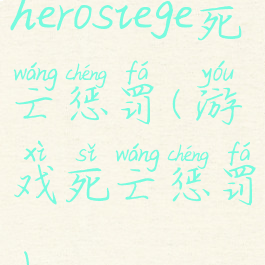 herosiege死
wáng chéng fá yóu
亡惩罚(游
xì sǐ wáng chéng fá
戏死亡惩罚
)